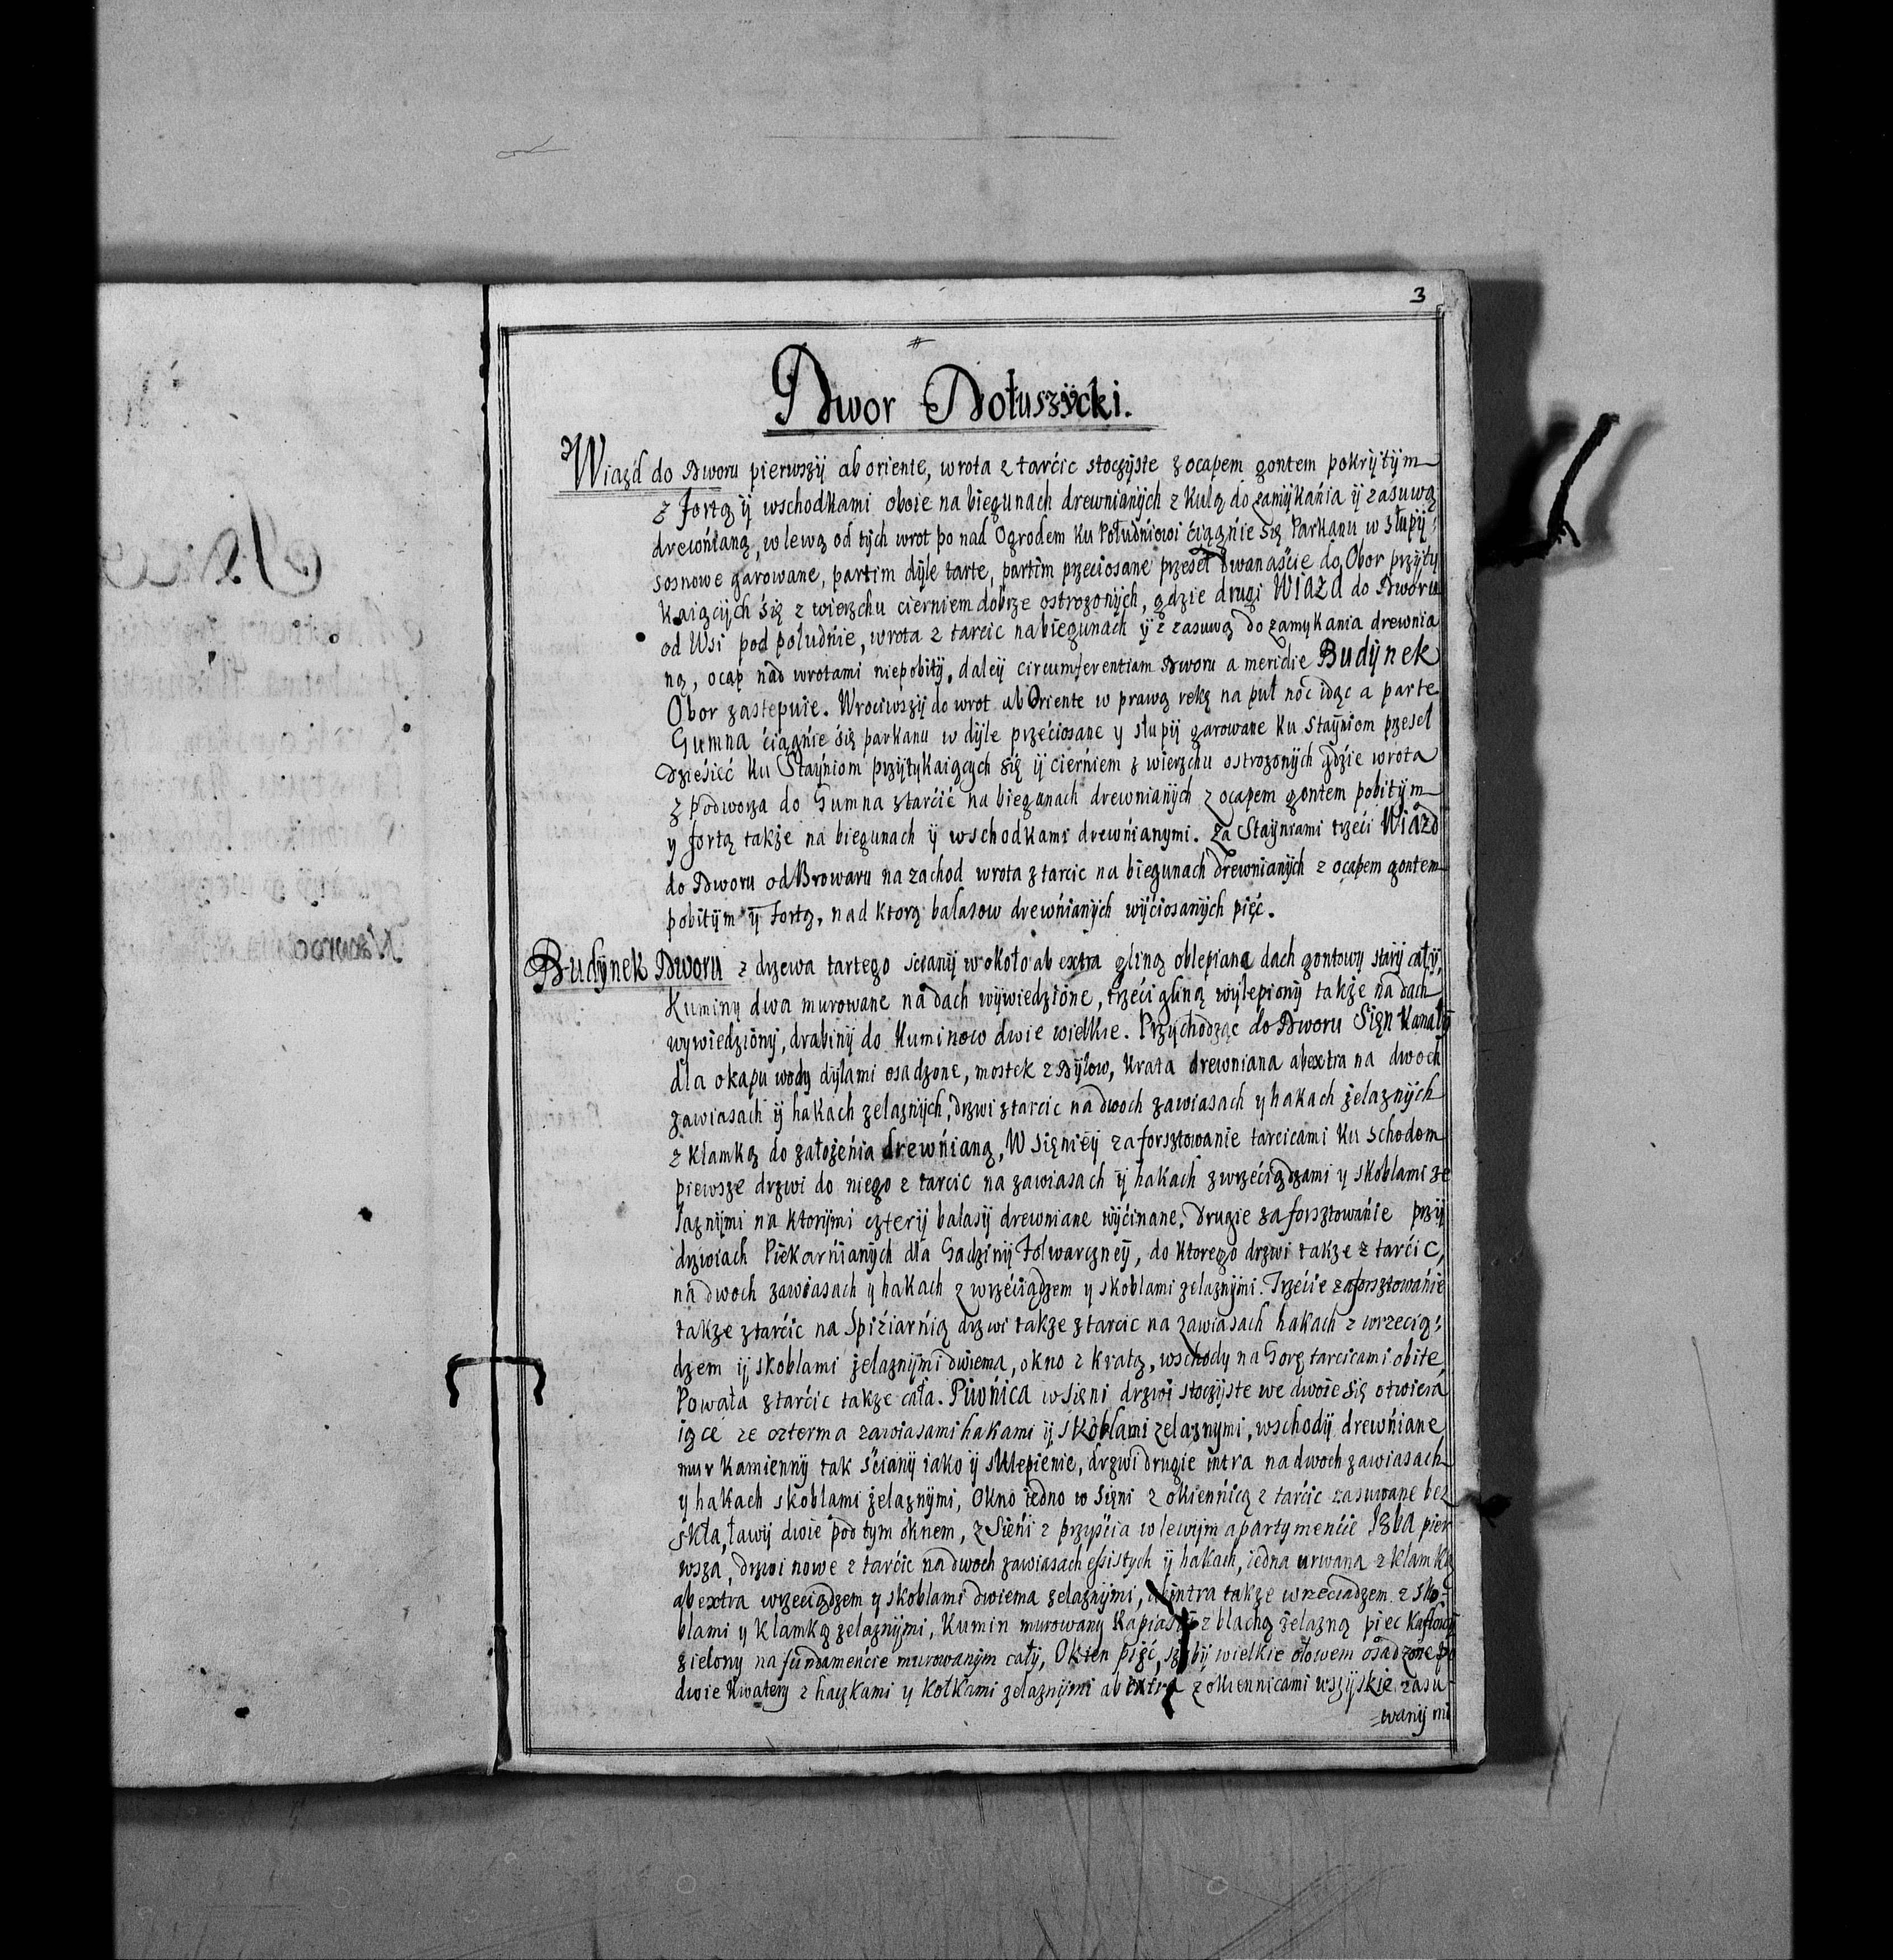 3
Dwor Dołuszÿcki.
Wiazd do Dworu pierwszÿ ab oriente, wrota z tarćic stoczÿste z ocapem gontem pokrÿtÿm
z Fortą ÿ wschodkami oboie na biegunach drewnianÿch z kulą do zamÿkánia ÿ zasuwą
drewńianą, w lewą od tÿch wrot po nad Ogrodem ku Południowi ćiągńie się Parkanu w słupÿ
sosnowe garowane, partim dÿle tarte, partim przeciosane przeseł Dwanaśćie do Obor przÿtÿ
kaiącÿch śię z wierzchu cierniem dobrze ostrozonÿch, gdzie drugi Wiazd do Dworu
od Wsi pod południe, wrota z tarcic na biegunach ÿ z zasuwą do zamykania drewnia
ną, ocap nad wrotami niepobitÿ, daleÿ circumferentiam Dworu a meridie Budÿnek
Obor zastępuie. Wrociwszÿ do wrot ab Oriente w prawą rękę na puł noc idąc a parte
Gumna ćiągńie śię parkanu w dÿle przećiosane y słupÿ garowane ku Staÿniom przeseł
dzieśięć ku Staÿniom przÿtykaiących się ÿ cierńiem z wierzchu ostrozonÿch gdźie wrota
z Podworza do Gumna z tarćić na biegunach drewnianÿch z ocapem gontem pobitÿm
y Fortą takze na biegunach ÿ wschodkami drewńianymi. Za Staÿniami trzeći Wiazd
do Dworu od Browaru na zachod wrota z tarcic na biegunach drewnianÿch z ocapem gontem
pobitÿm ÿ Fortą, nad ktorą balasow drewńianÿch wÿćiosanÿch pięć.
Budÿnek Dworu z drzewa tartego ścianÿ w około ab extra gliną oblepiana dach gontowy starÿ całÿ,
Kuminy dwa murowane na dach wÿwiedźione, trzeći gliną wÿlepionÿ takze na dach
wywiedzionÿ, drabinÿ do Kuminow dwie wielkie. Przÿchodząc do Dworu Sięn Kanałÿ
dla okapu wody dÿlami osadzone, mostek z Dÿlow, Krata drewniana ab extra na dwoch
zawiasach ÿ hakach zelaznÿch, drzwi z tarcic na dwoch zawiasach y hakach żelaznÿch
z klamką do załozeńia drewńianą, W Sięnieÿ zaforsztowanie tarcicami ku schodom
piewsze drzwi do niego z tarcic na zawiasach ÿ hakach z wrzećiądzami y skoblami ze
laznÿmi na ktorÿmi czterÿ balasÿ drewniane wÿćinane. Drugie zaforsztowańie przÿ
drzwiach Piekarńianÿch dla Gadzinÿ Folwarczneÿ, do ktorego drzwi takze z tarćic,
na dwoch zawiasach y hakach z wrzećiądzem y skoblami zelaznÿmi. Trzećie zaforsztowáńie
takze z tarćic na Spiżiarńią drzwi takze z tarcic na zawiasach hakach z wrzecią
dzem ÿ skoblami żelaznÿmi dwiema, okno z kratą, wschody na Gorę tarcicami obite,
Powała z tarćic takze cała. Piwńica w Sięni drzwi stoczÿste we dwoie się otwiera
iące ze czterma zawiasami hakami ÿ skoblami zelaznymi, wschodÿ drewńiane
mur kamiennÿ tak Śćianÿ iako ÿ sklepienie, drzwi drugie intra na dwoch zawiasach
y hakach skoblami żelaznÿmi, Okno iedno w Sięni z okiennicą z tarćic zasuwane bez
skła, ławÿ dwie pod tym oknem, z Sieńi z przyśćia w lewÿm apartymenćie Izba pier
wsza, drzwi nowe z tarćic na dwoch zawiasach essistych ÿ hakach, iedna urwana z klamką
ab extra wrzeciądzem y skoblami dwiema zelaznÿmi, intra takze wrzeciadzem z sko-
blami y klamką zelaznÿmi, Kumin murowany z blachą żelazną piec kaflowÿ
zielony na fundamenćie murowanÿm całÿ, Okien pięć, szÿbÿ wielkie ołowem osadzone po
dwie kwatery z haczkami y kołkami zelaznÿmi ab extra z okiennicami wszÿskie zasu
-wanÿmi